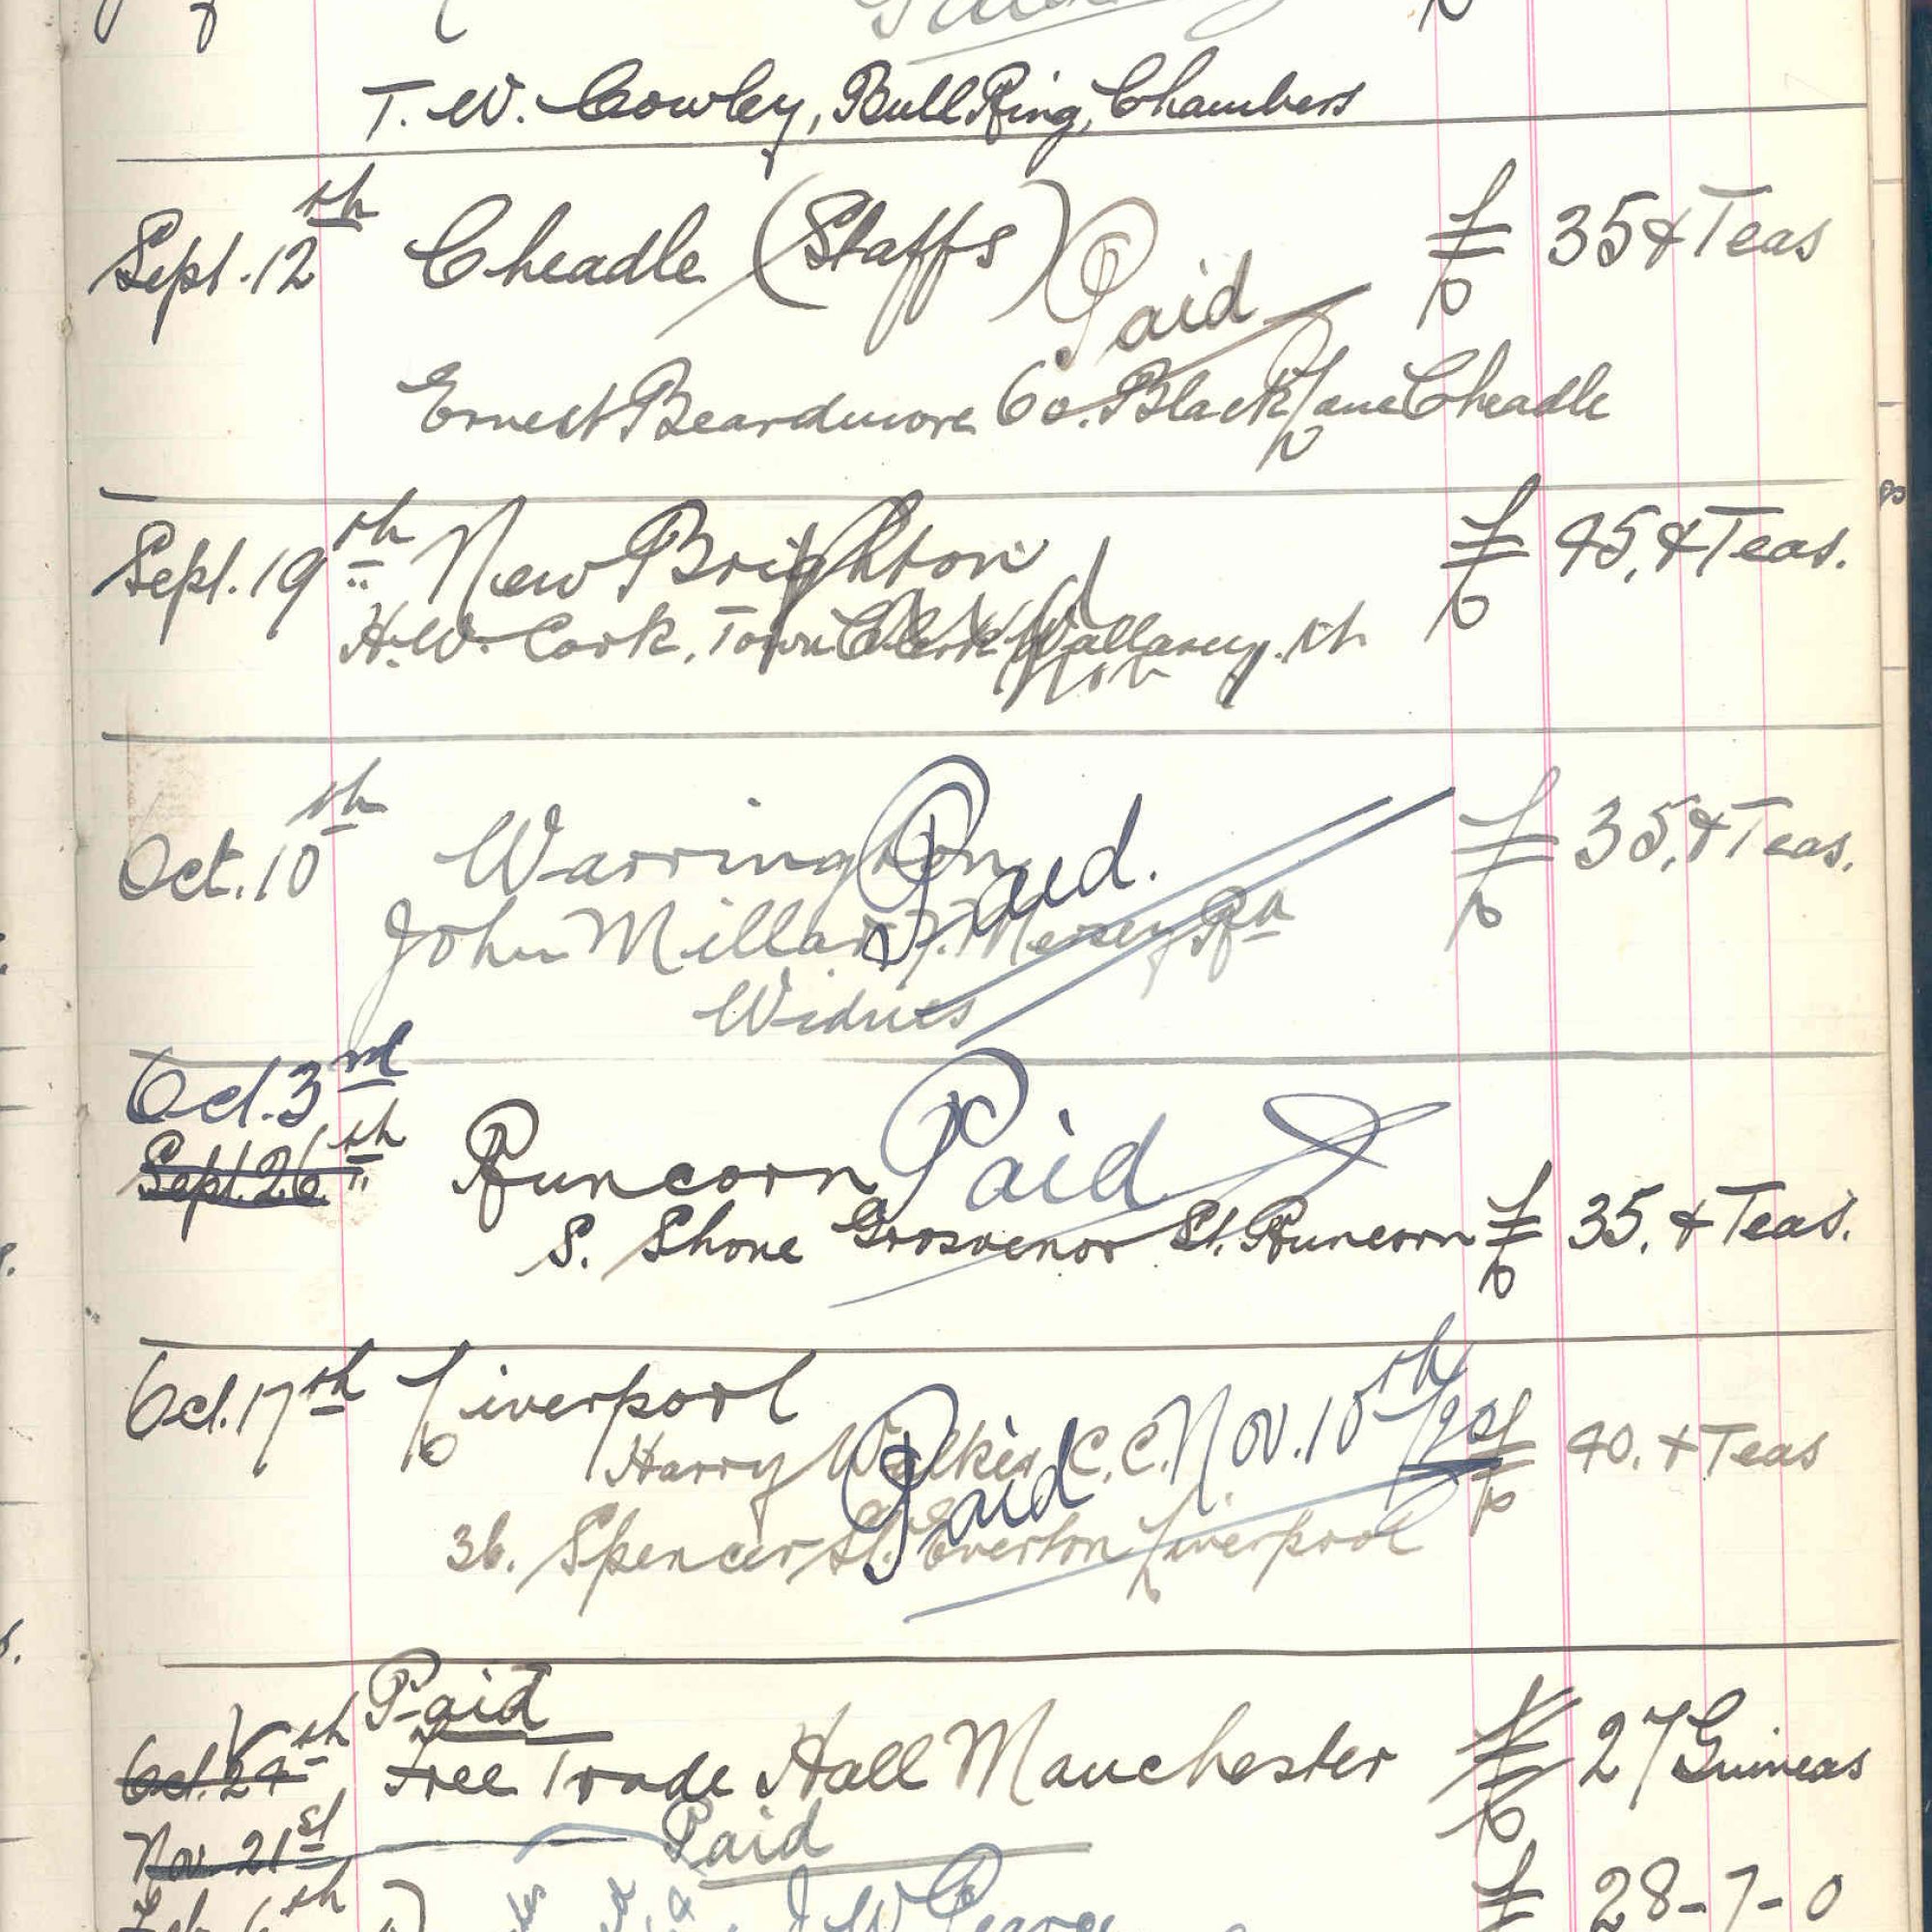 T. W. Cowley, Bull Ring, Chambers
Sept. 12th Cheadle (Staffs) Paid £ 35 & Teas
Ernest Beardmore 60. Black Lane Cheadle
Sept. 19th New Brighton £ 45, & Teas.
H. W. Cook, Town Clerk Wallasey.
Oct. 10th Warrington Paid. £ 35, & Teas.
John Millar 7. Mersey Rd
Widnes
Oct. 3rd
Sept. 26th Runcorn Paid
S. Shone Grosvenor St. Runcorn £ 35. & Teas.
Oct. 17th Liverpool
Harry Walker C.C. Nov. 10th £ 40. & Teas
Paid
36. Spencer St. Everton Liverpool
Paid
Oct. 24th Free Trade Hall Manchester £ 27 Guineas
Nov. 21st Paid
Feb. 6th J W Pearce £ 28-7-0